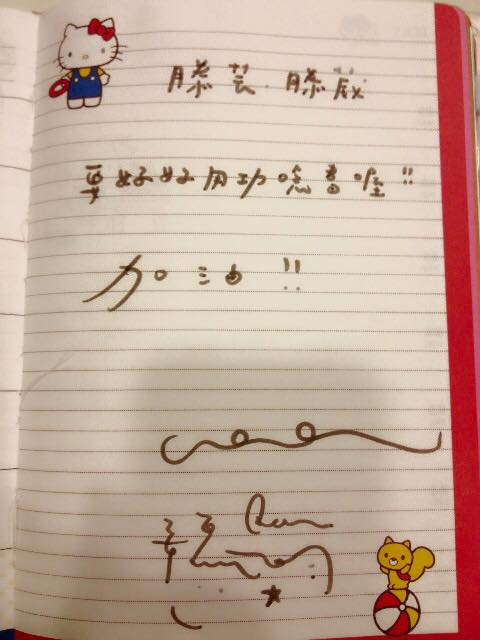 滕芸. 滕
要好好用功唸書喔!!
加油!!